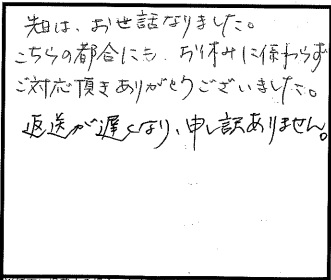 先日は、お世話なりました。
こちらの都合にも、お休みに係わらず
ご対応頂きありがとうございました。
返送が遅くなり、申し訳ありません。